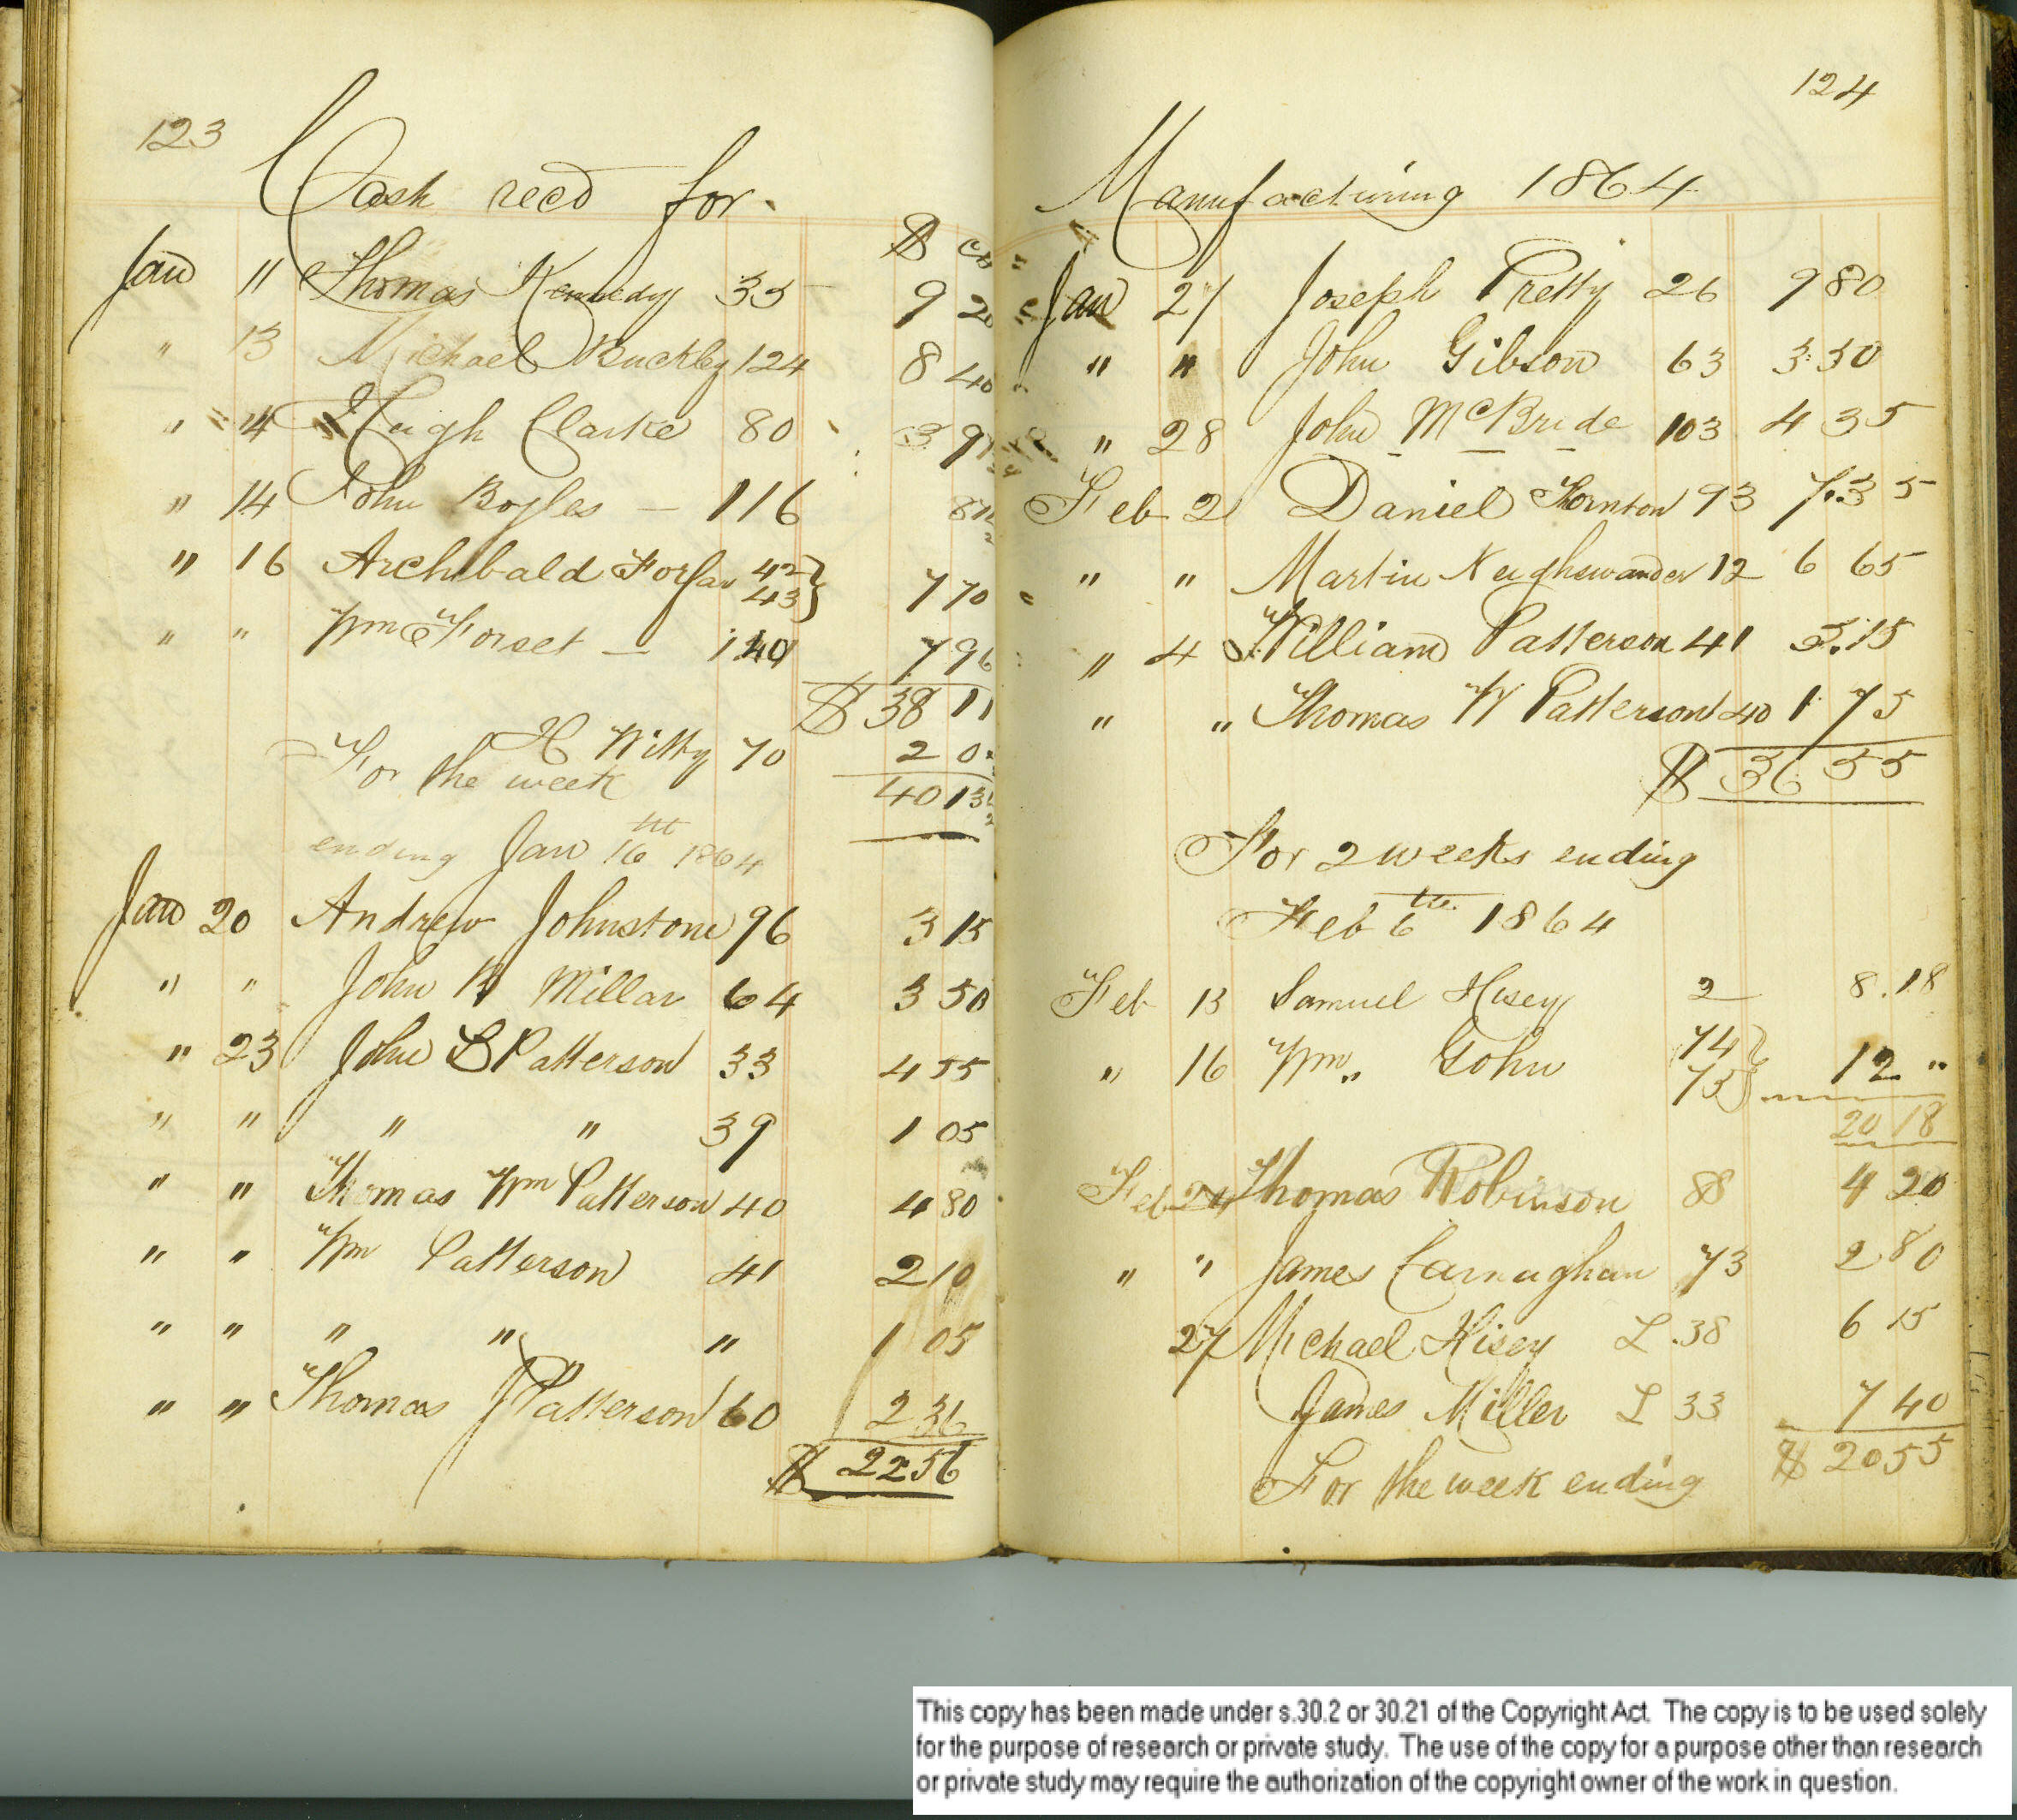 123
Cash recd for
$ cts
Jan 11 Thomas Kennedy 35 9 20
" 13 Michael Buckley 124 8 40
" 14 Hugh Clarke 80 3 9
" 14 John Boyles — 116 81
" 16 Archibald Forfar 42 } 43 } 7 70
" " Wm Forset — 140 7 96
$ 38 11
H Witty 70 2 0
For the week
40 13
ending Jan 16th 1864
Jan 20 Andrew Johnstone 96 3 15
" " John B Millar 64 3 50
" 23 John S Patterson 33 4 55
" " " " 39 1 05
" " Thomas Wm Patterson 40 4 80
" " Wm Patterson 41 2 10
" " " " " 1 05
" " Thomas J Patterson 60 2 36
$ 22 56
124
Manufacturing 1864
Jan 27 Joseph Pretty 26 9 80
" " John Gibson 63 3.50
" 28 John McBride 103 4 35
Feb 2 Daniel Thornton 93 7.35
" " Martin Neighswander 12 6 65
" 4 William Patterson 41 3.15
" " Thomas W Patterson 40 1 75
$ 36 55
For 2 weeks ending
Feb 6th 1864
Feb 13 Samuel Hisey 2 8.18
" 16 Wm " Gohn 74 } 75 } 12 "
20 18
Feb 24 Thomas Robinson 88 4 20
" " James Carnaghan 73 2 80
27 Michael Hisey L.38 6 15
James Miller L 33 7 40
$ 20 55
For the week ending
This copy has been made under s.30.2 or 30.21 of the Copyright Act. The copy is to be used solely
for the purpose of research or private study. The use of the copy for a purpose other than research
or private study may require the authorization of the copyright owner of the work in question.